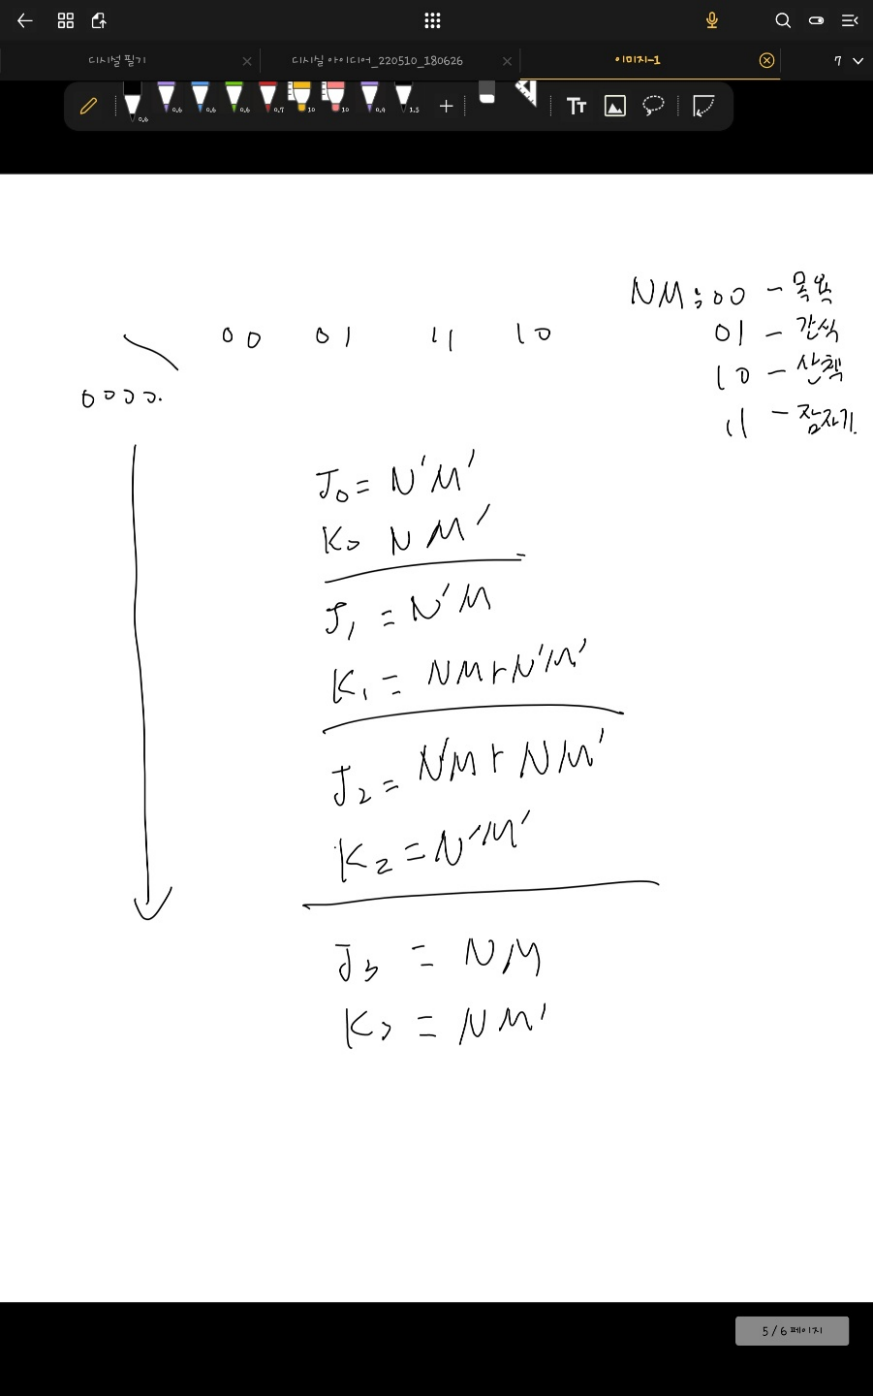 디시설 필기
디시설 아이디어_220510_180626
이미지-1
7
0.6
0.6
0.6
0.6
0.7
10
10
0.9
1.5
Tt
NM: 00 - 목욕
01 - 간식
10 - 산책
11 - 잠자기.
00 01 11 10
0000.
J0 = N'M'
K0 NM'
J1 = N'M
K1 = NM+N'M'
J2 = NM+NM'
K2 = N'M'
J3 = NM
K3 = NM'
5/6 페이지